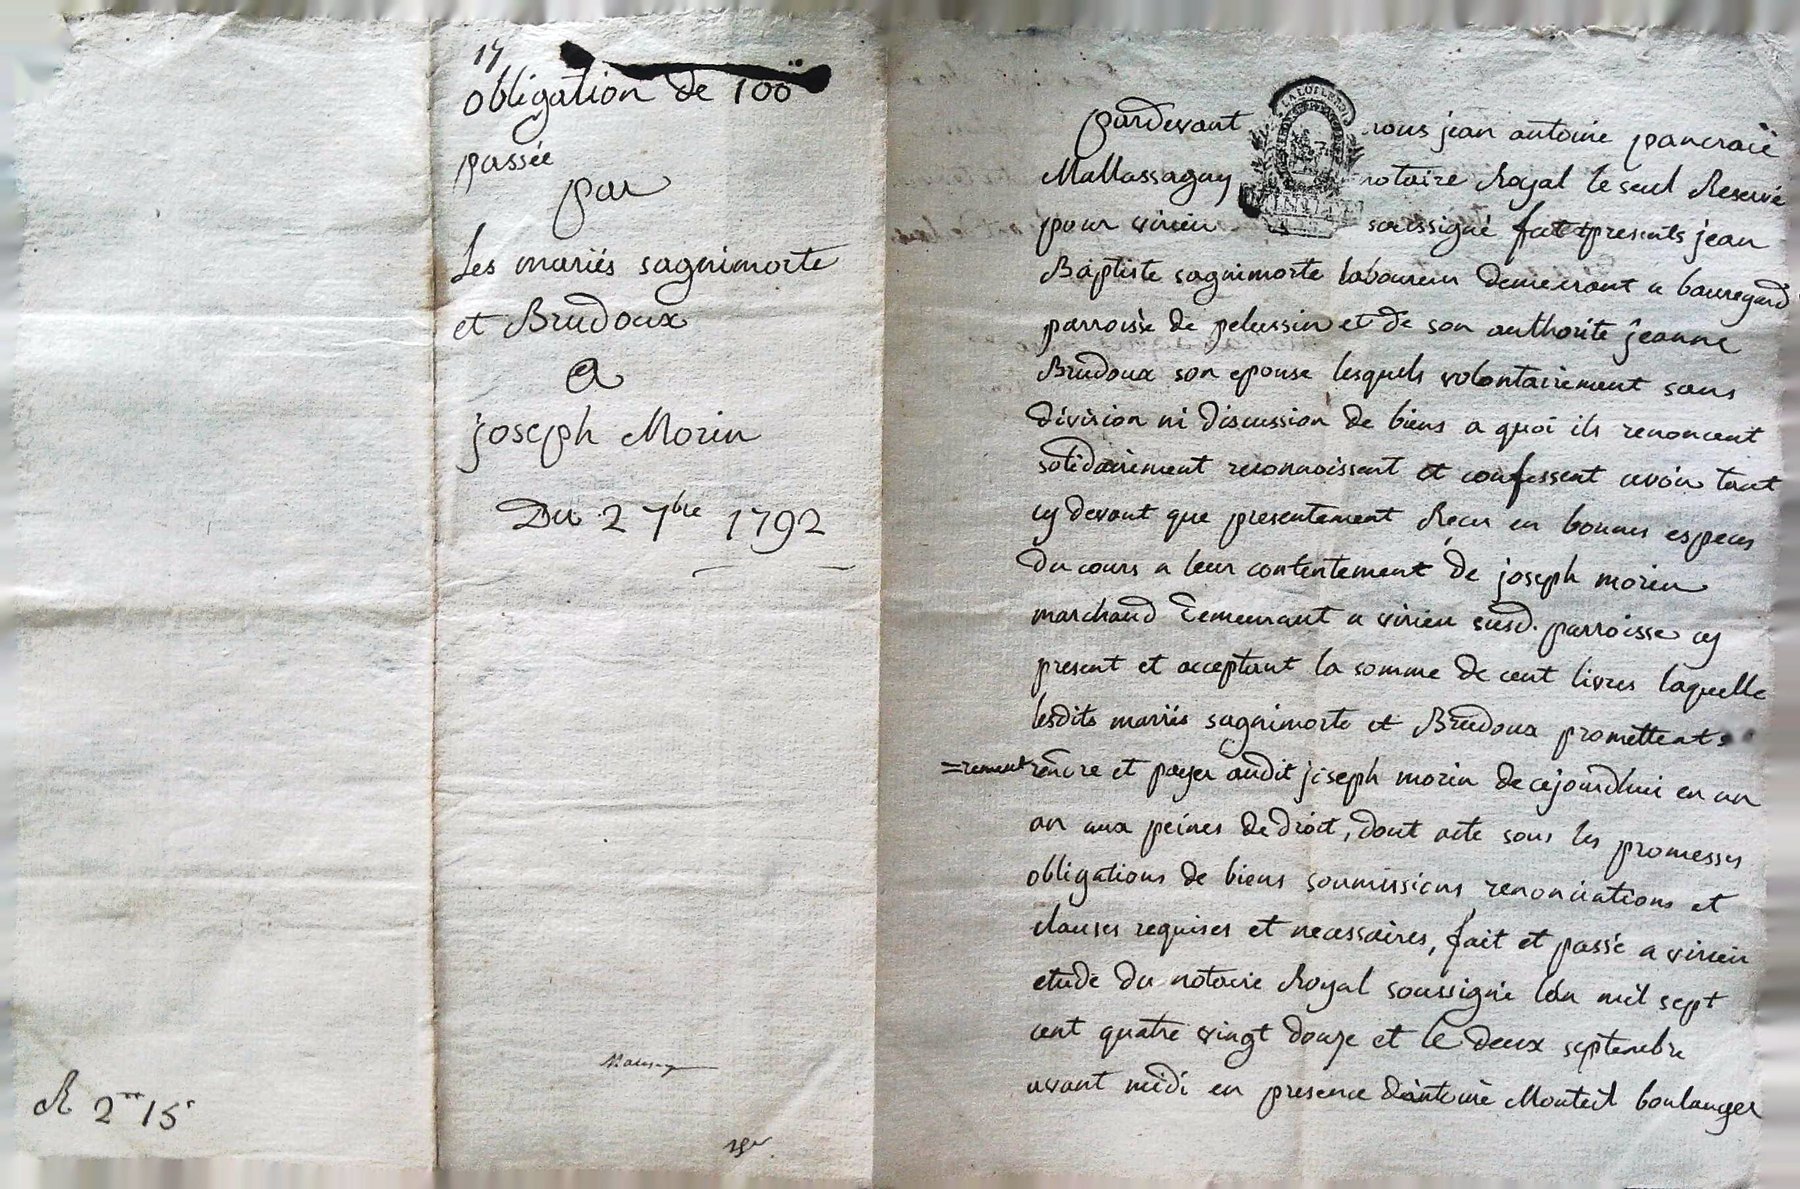 17
obligation de 100
passée
par
Les mariés sagnimorte
et Brudoux
a
joseph Morin
Du 2 7bre 1792
R 2 15
pardevant nous jean antoine pancrace
Mallassagny notaire Royal le seul Reservé
pour virieu soussigné presents jean
Baptiste sagnimorte laboureur demeurant a bauregard
parroisse de pelussin et de son authorité jeanne
Brudoux son epouse lesquels volontairement sans
division ni discussion de biens a quoi ils renoncent
solidairement reconnoissent et confessent avoir tant
cy devant que presentement Recu en bonnes especes
du cours a leur contentement de joseph morin
marchand demeurant a virieu susd. parroisse cy
present et acceptant la somme de cent livres laquelle
lesdits mariés sagnimorte et Brudoux promettent
=rement rendre et payer audit joseph morin de cejourdhui en un
an aux peines de droit, dont acte sous les promesses
obligations de biens soumissions renonciations et
clauses requises et necessaires, fait et passé a virieu
etude du notaire Royal soussigné lan mil sept
cent quatre vingt douze et le deux septembre
avant midi en presence dantoine Monteil boulanger